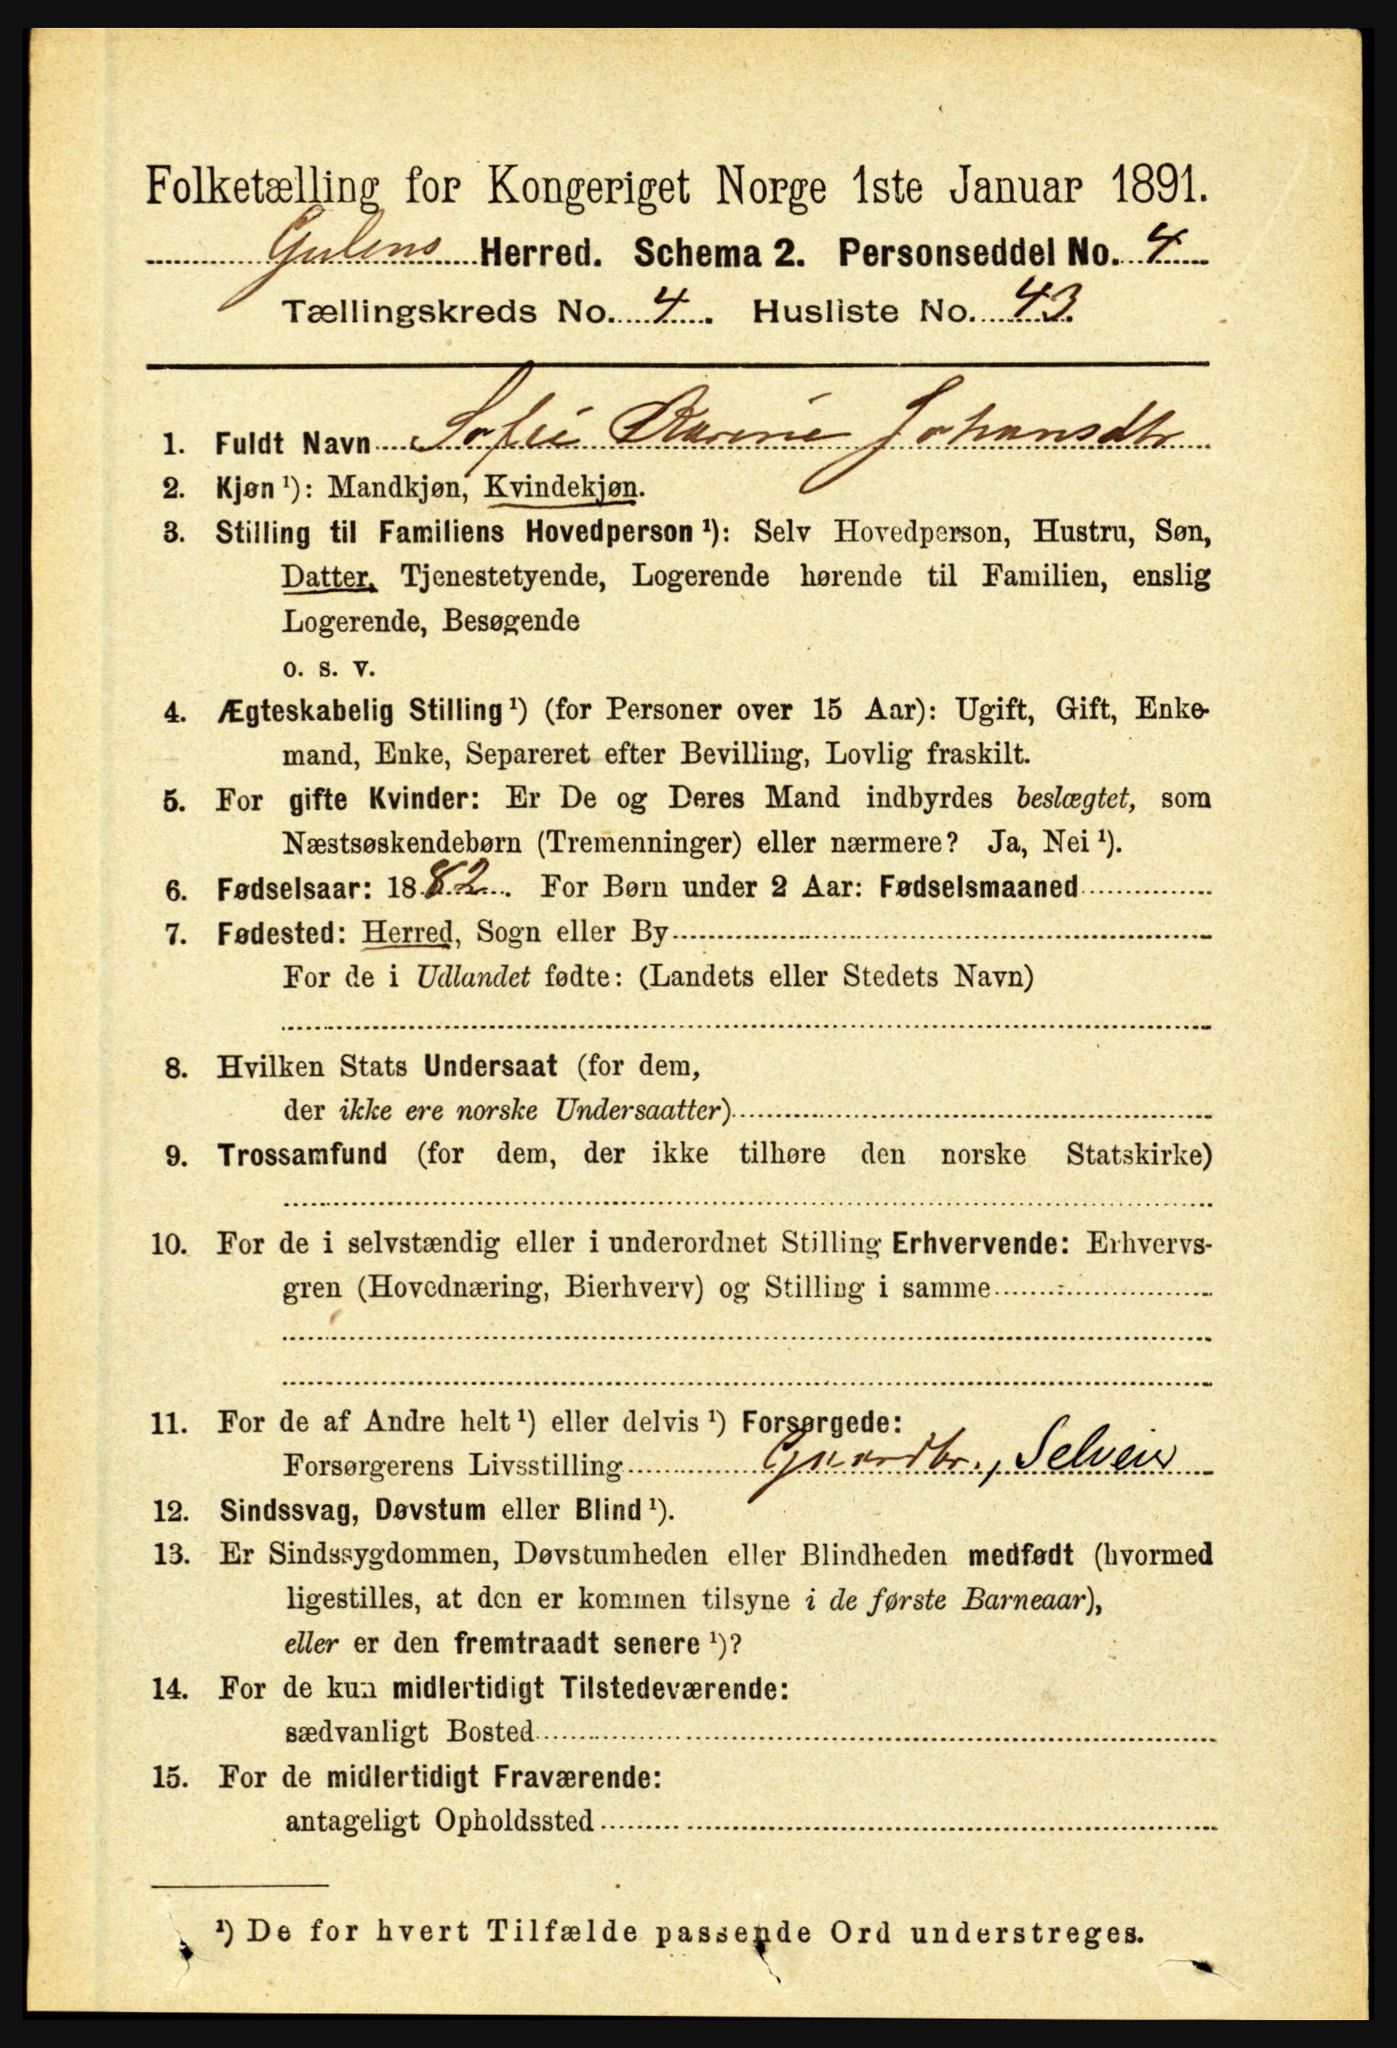 Folketælling for Kongeriget Norge 1ste Januar 1891.
Gulens Herred. Schema 2. Personseddel No. 4
Tællingskreds No. 4. Husliste No. 43.
1. Fuldt Navn Sofie Karine Johansdtr
2. Kjøn ¹): Mandkjøn, Kvindekjøn.
3. Stilling til Familiens Hovedperson ¹): Selv Hovedperson, Hustru, Søn,
Datter, Tjenestetyende, Logerende hørende til Familien, enslig
Logerende, Besøgende
o. s. v.
4. Ægteskabelig Stilling ¹) (for Personer over 15 Aar): Ugift, Gift, Enke-
mand, Enke, Separeret efter Bevilling, Lovlig fraskilt.
5. For gifte Kvinder: Er De og Deres Mand indbyrdes beslægtet, som
Næstsøskendebørn (Tremenninger) eller nærmere? Ja, Nei ¹).
6. Fødselsaar: 1882. For Børn under 2 Aar: Fødselsmaaned
7. Fødested: Herred, Sogn eller By
For de i Udlandet fødte: (Landets eller Stedets Navn)
8. Hvilken Stats Undersaat (for dem,
der ikke ere norske Undersaatter)
9. Trossamfund (for dem, der ikke tilhøre den norske Statskirke)
10. For de i selvstændig eller i underordnet Stilling Erhvervende: Erhvervs-
gren (Hovednæring, Bierhverv) og Stilling i samme
11. For de af Andre helt ¹) eller delvis ¹) Forsørgede:
Forsørgerens Livsstilling Gaardbr., Selveier
12. Sindssvag, Døvstum eller Blind ¹).
13. Er Sindssygdommen, Døvstumheden eller Blindheden medfødt (hvormed
ligestilles, at den er kommen tilsyne i de første Barneaar),
eller er den fremtraadt senere ¹)?
14. For de kun midlertidigt Tilstedeværende:
sædvanligt Bosted
15. For de midlertidigt Fraværende:
antageligt Opholdssted
¹) De for hvert Tilfælde passende Ord understreges.